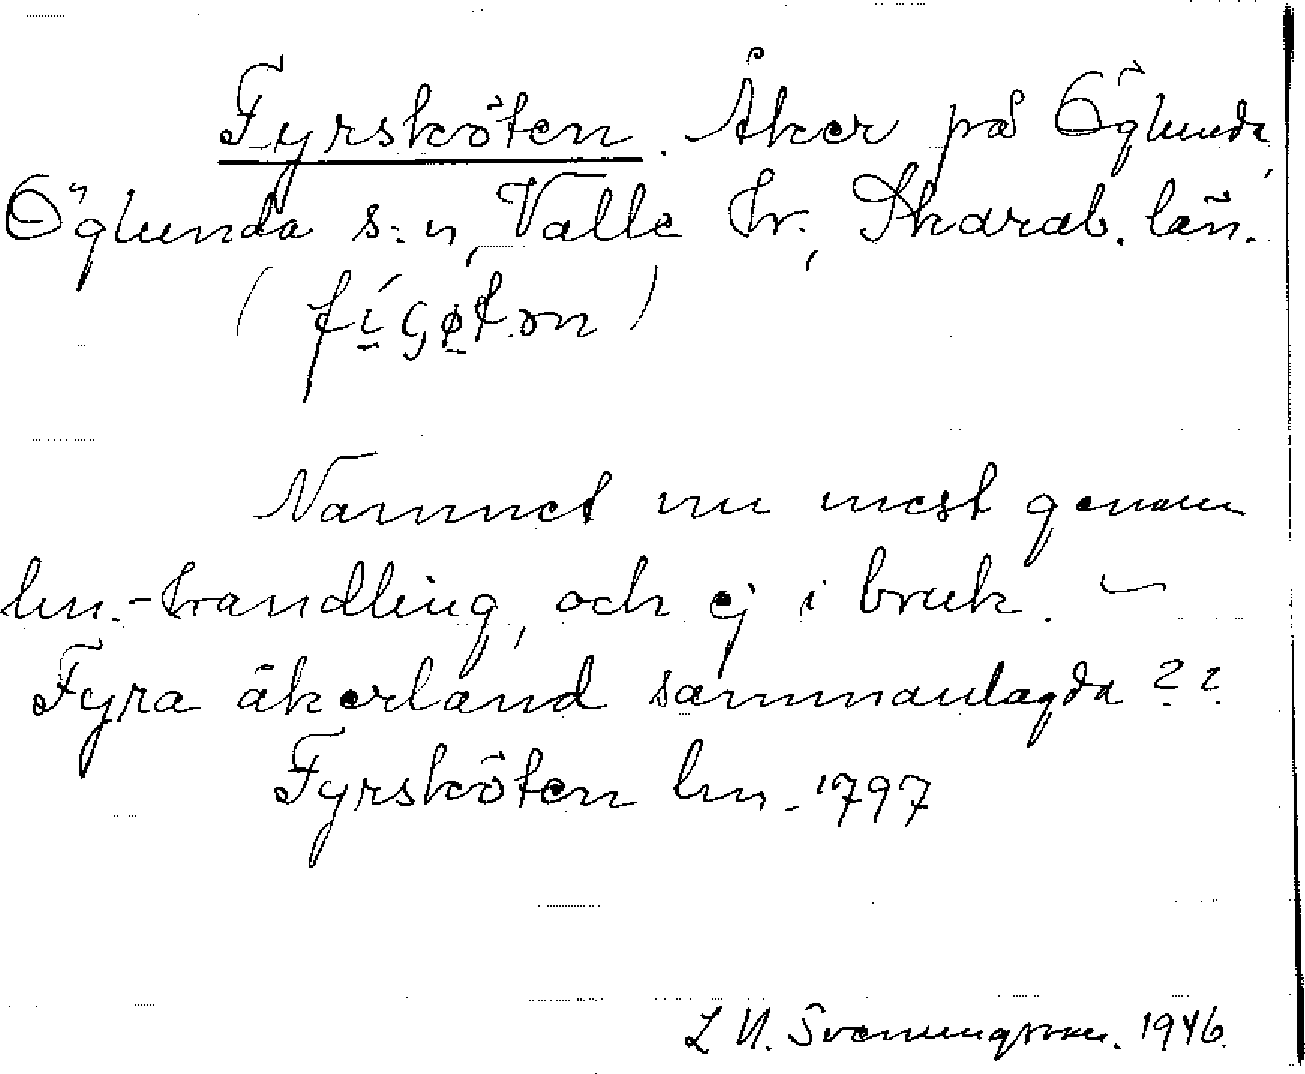 Fyrsköten. Åker på Öglunda,
Öglunda s:n, Valle hr., Skarab. län.
( )
Namnet nu mest genom
lm.-handling, och ej i bruk. –
Fyra åkerland sammanlagda ??
Fyrsköten lm. 1797
L N. Svenungsson. 1946.